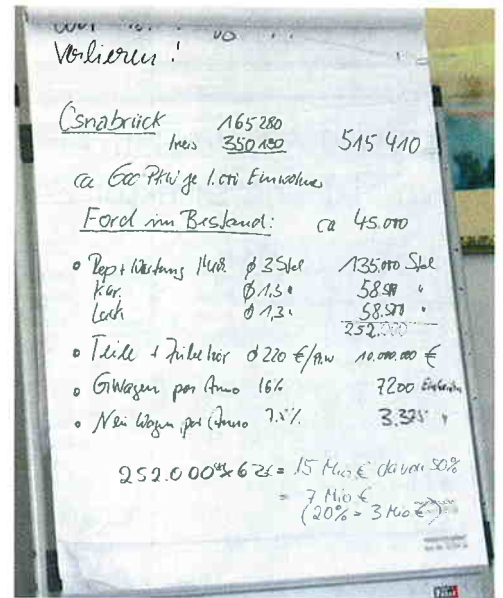 Verlieren!
Osnabrück 165 280
Kreis 350 130 515 410
ca 600 PKW je 1.000 Einwohner
Ford im Bestand: ca 45.000
• Rep + Wartung ø 3 Std 135.000 Std
Kar. ø 1,3 " 58.500 "
Lack ø 1,3 " 58.500 "
252.000
• Teile + Zubehör ø 220 €/PKW 10.000.000 €
• G.Wagen por Anno 16% 7200 Einheiten
• Neu Wagen por Anno 7.5% 3.375 "
252.000 x 62 = 15 Mio € davon 50%
= 7 Mio €
(20% = 3 Mio €)